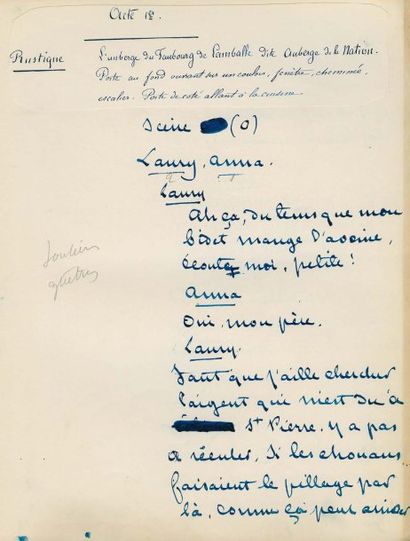 Acte 1er.
Rustique
L'auberge du Faubourg de Lamballe dite Auberge de la Nation.
Porte au fond ouvrant sur un couloir, fenêtre, cheminée,
escalier. Porte de coté allant à la cuisine.
Scène (0)
Laury, Anna.
Laury
Ah ça, du tems que mon
bidet mange l'avoine,
écoute moi, petite!
Souliers
guêtres
Anna
Oui, mon père.
Laury.
Faut que j'aille chercher
l'argent qui m'est du à
St Pierre. y a pas
à réculer. Si les chouans
faisaient le pillage par
là, comme ça peut arriver